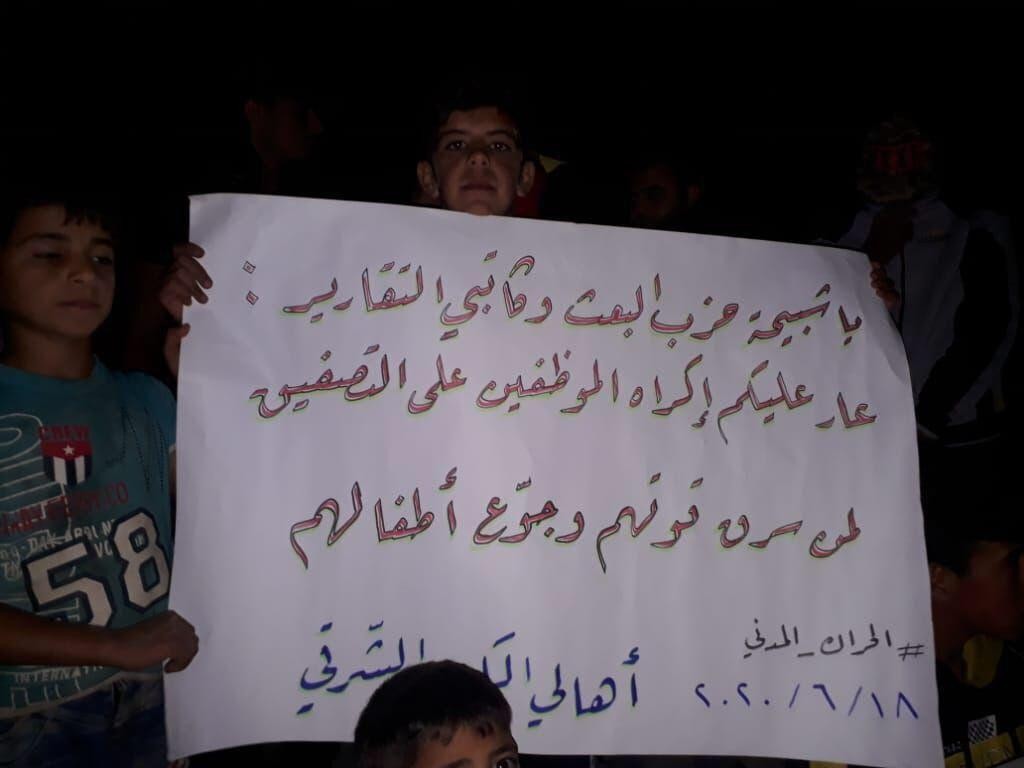 يا شبيحة حزب البعث وكاتبي التقارير :
عار عليكم إكراه الموظفين على التصفيق
لمن سرق قوتهم وجوّع أطفالهم
#الحراك_المدني
٢٠٢٠/٦/١٨
أهالي الشرقي
CREW
58
INTERNATI